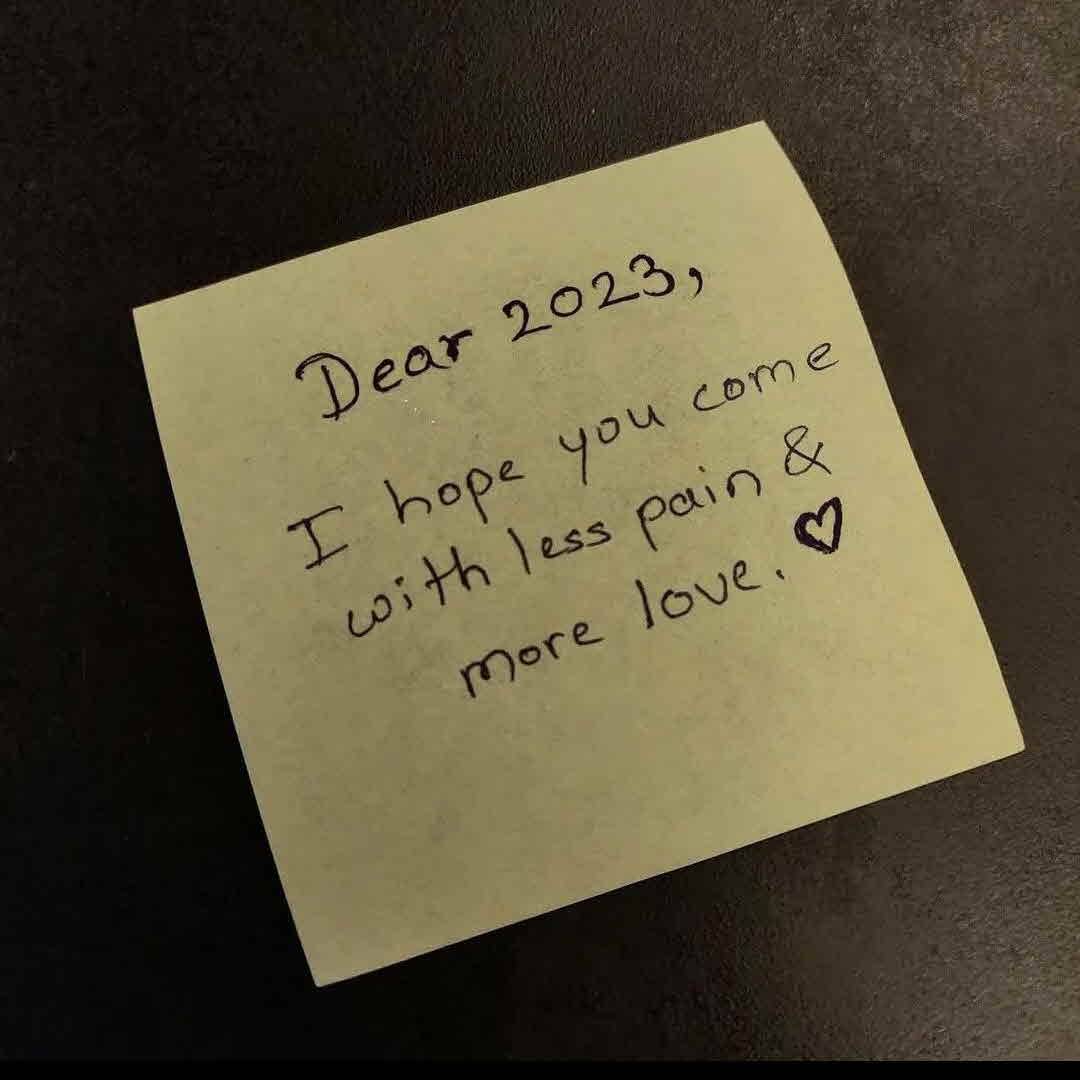 Dear 2023,
I hope you come
with less pain &
more love. ♡